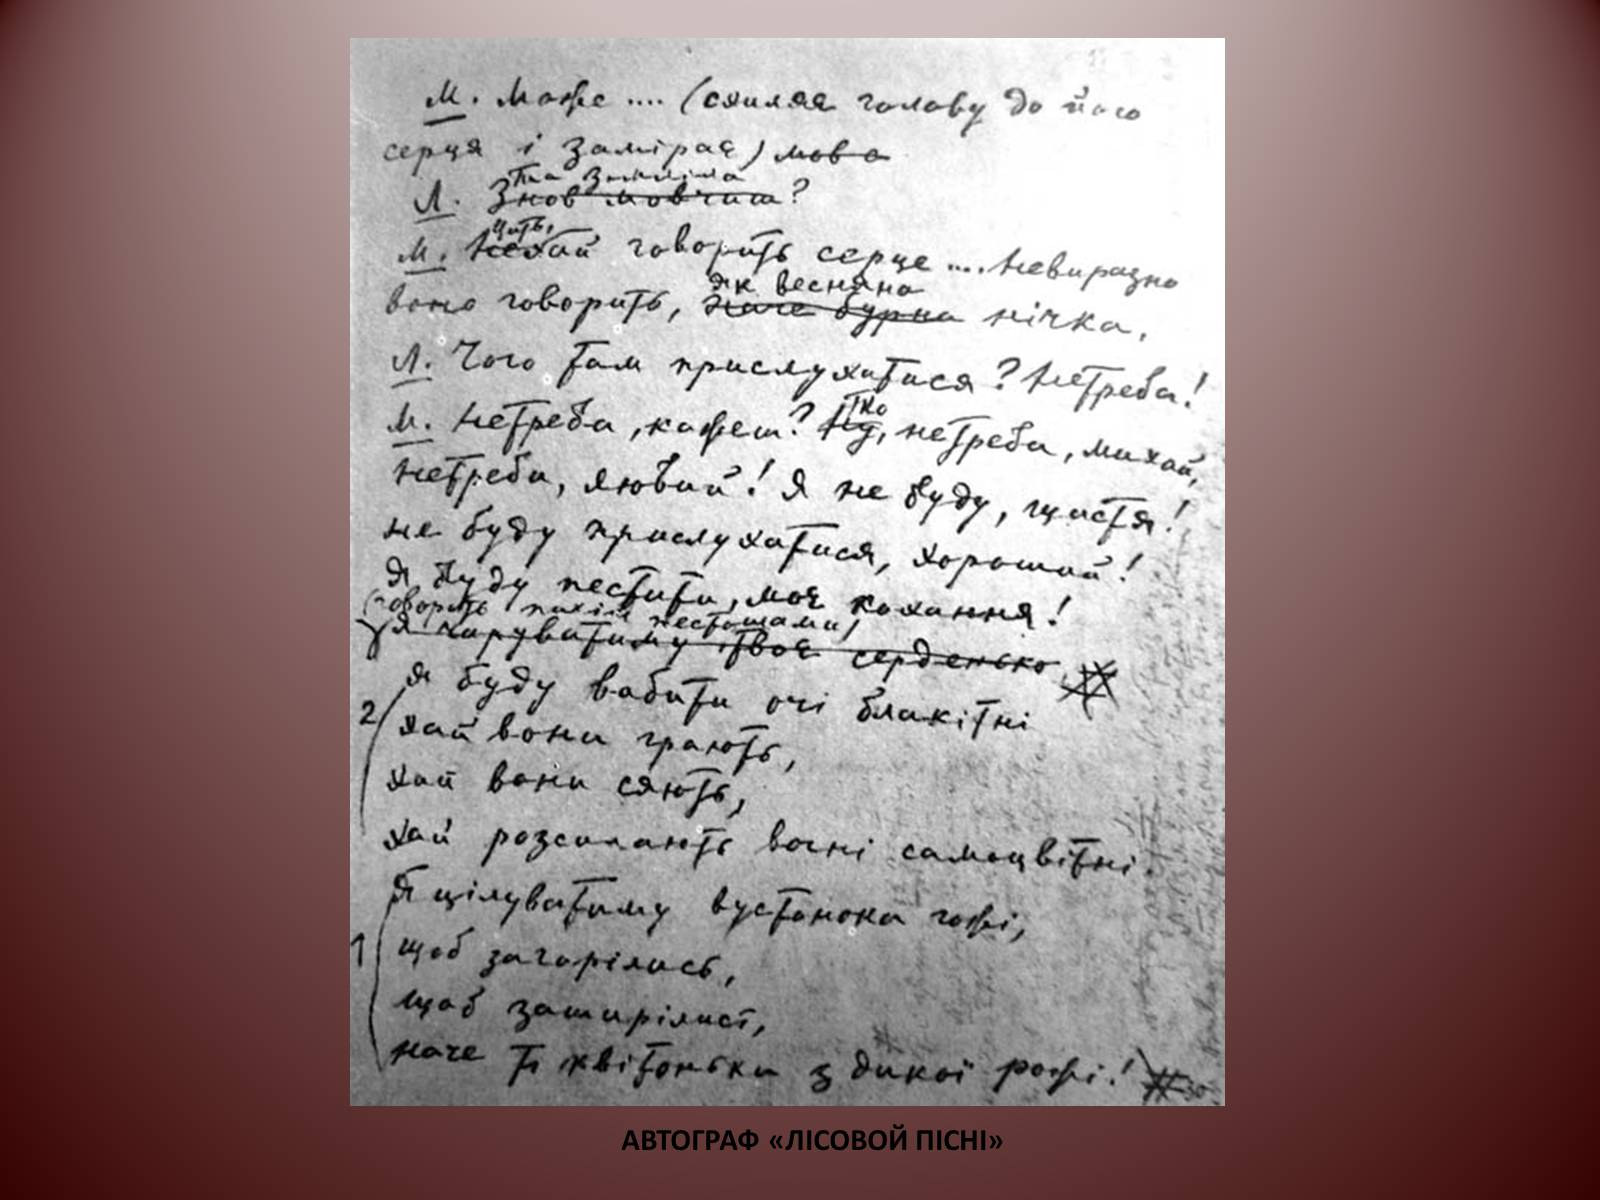 М. Може .... (схиляє голову до його
серця і замірає) мов с
та заніміла
Л. Знов мовчиш?
Цить,
М. Нехай говорить серце .... Невиразно
як весняна
воно говорить, наче бурна нічка.
Л. Чого там прислухатися? Не треба!
тко
М. Не треба, кажеш? Ну, не треба, милий,
Не треба, любий! Я не буду, щастя!
не буду прислухатися, хороший!
Я буду пестити, моє кохання!
(говорить тихім пестощами)
Я чаруватиму твоє серденько
Я буду вабити очі блакітні
2 хай вони грають,
хай вони сяють,
хай розсипають вогні самоцвітні.
Я цілуватиму вустонька гожі,
1 щоб загорілись,
щоб зашарілись,
наче ті квітоньки з дикої рожі!
АВТОГРАФ «ЛІСОВОЙ ПІСНІ»